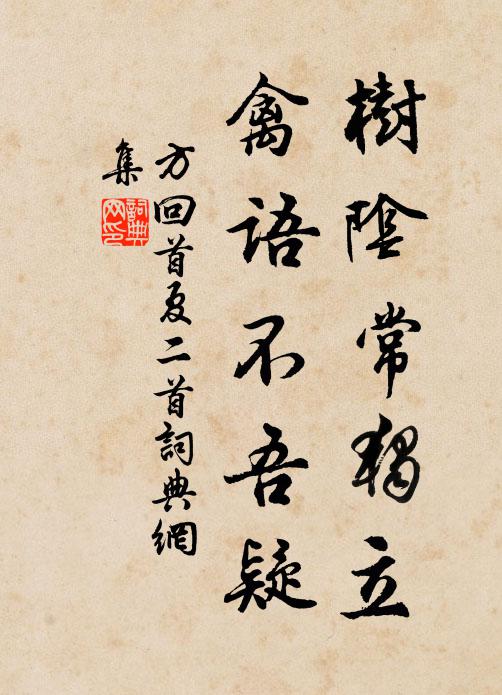 樹陰常獨立
禽語不吾疑
方回首夏二首詞典網
集
詞典
网印